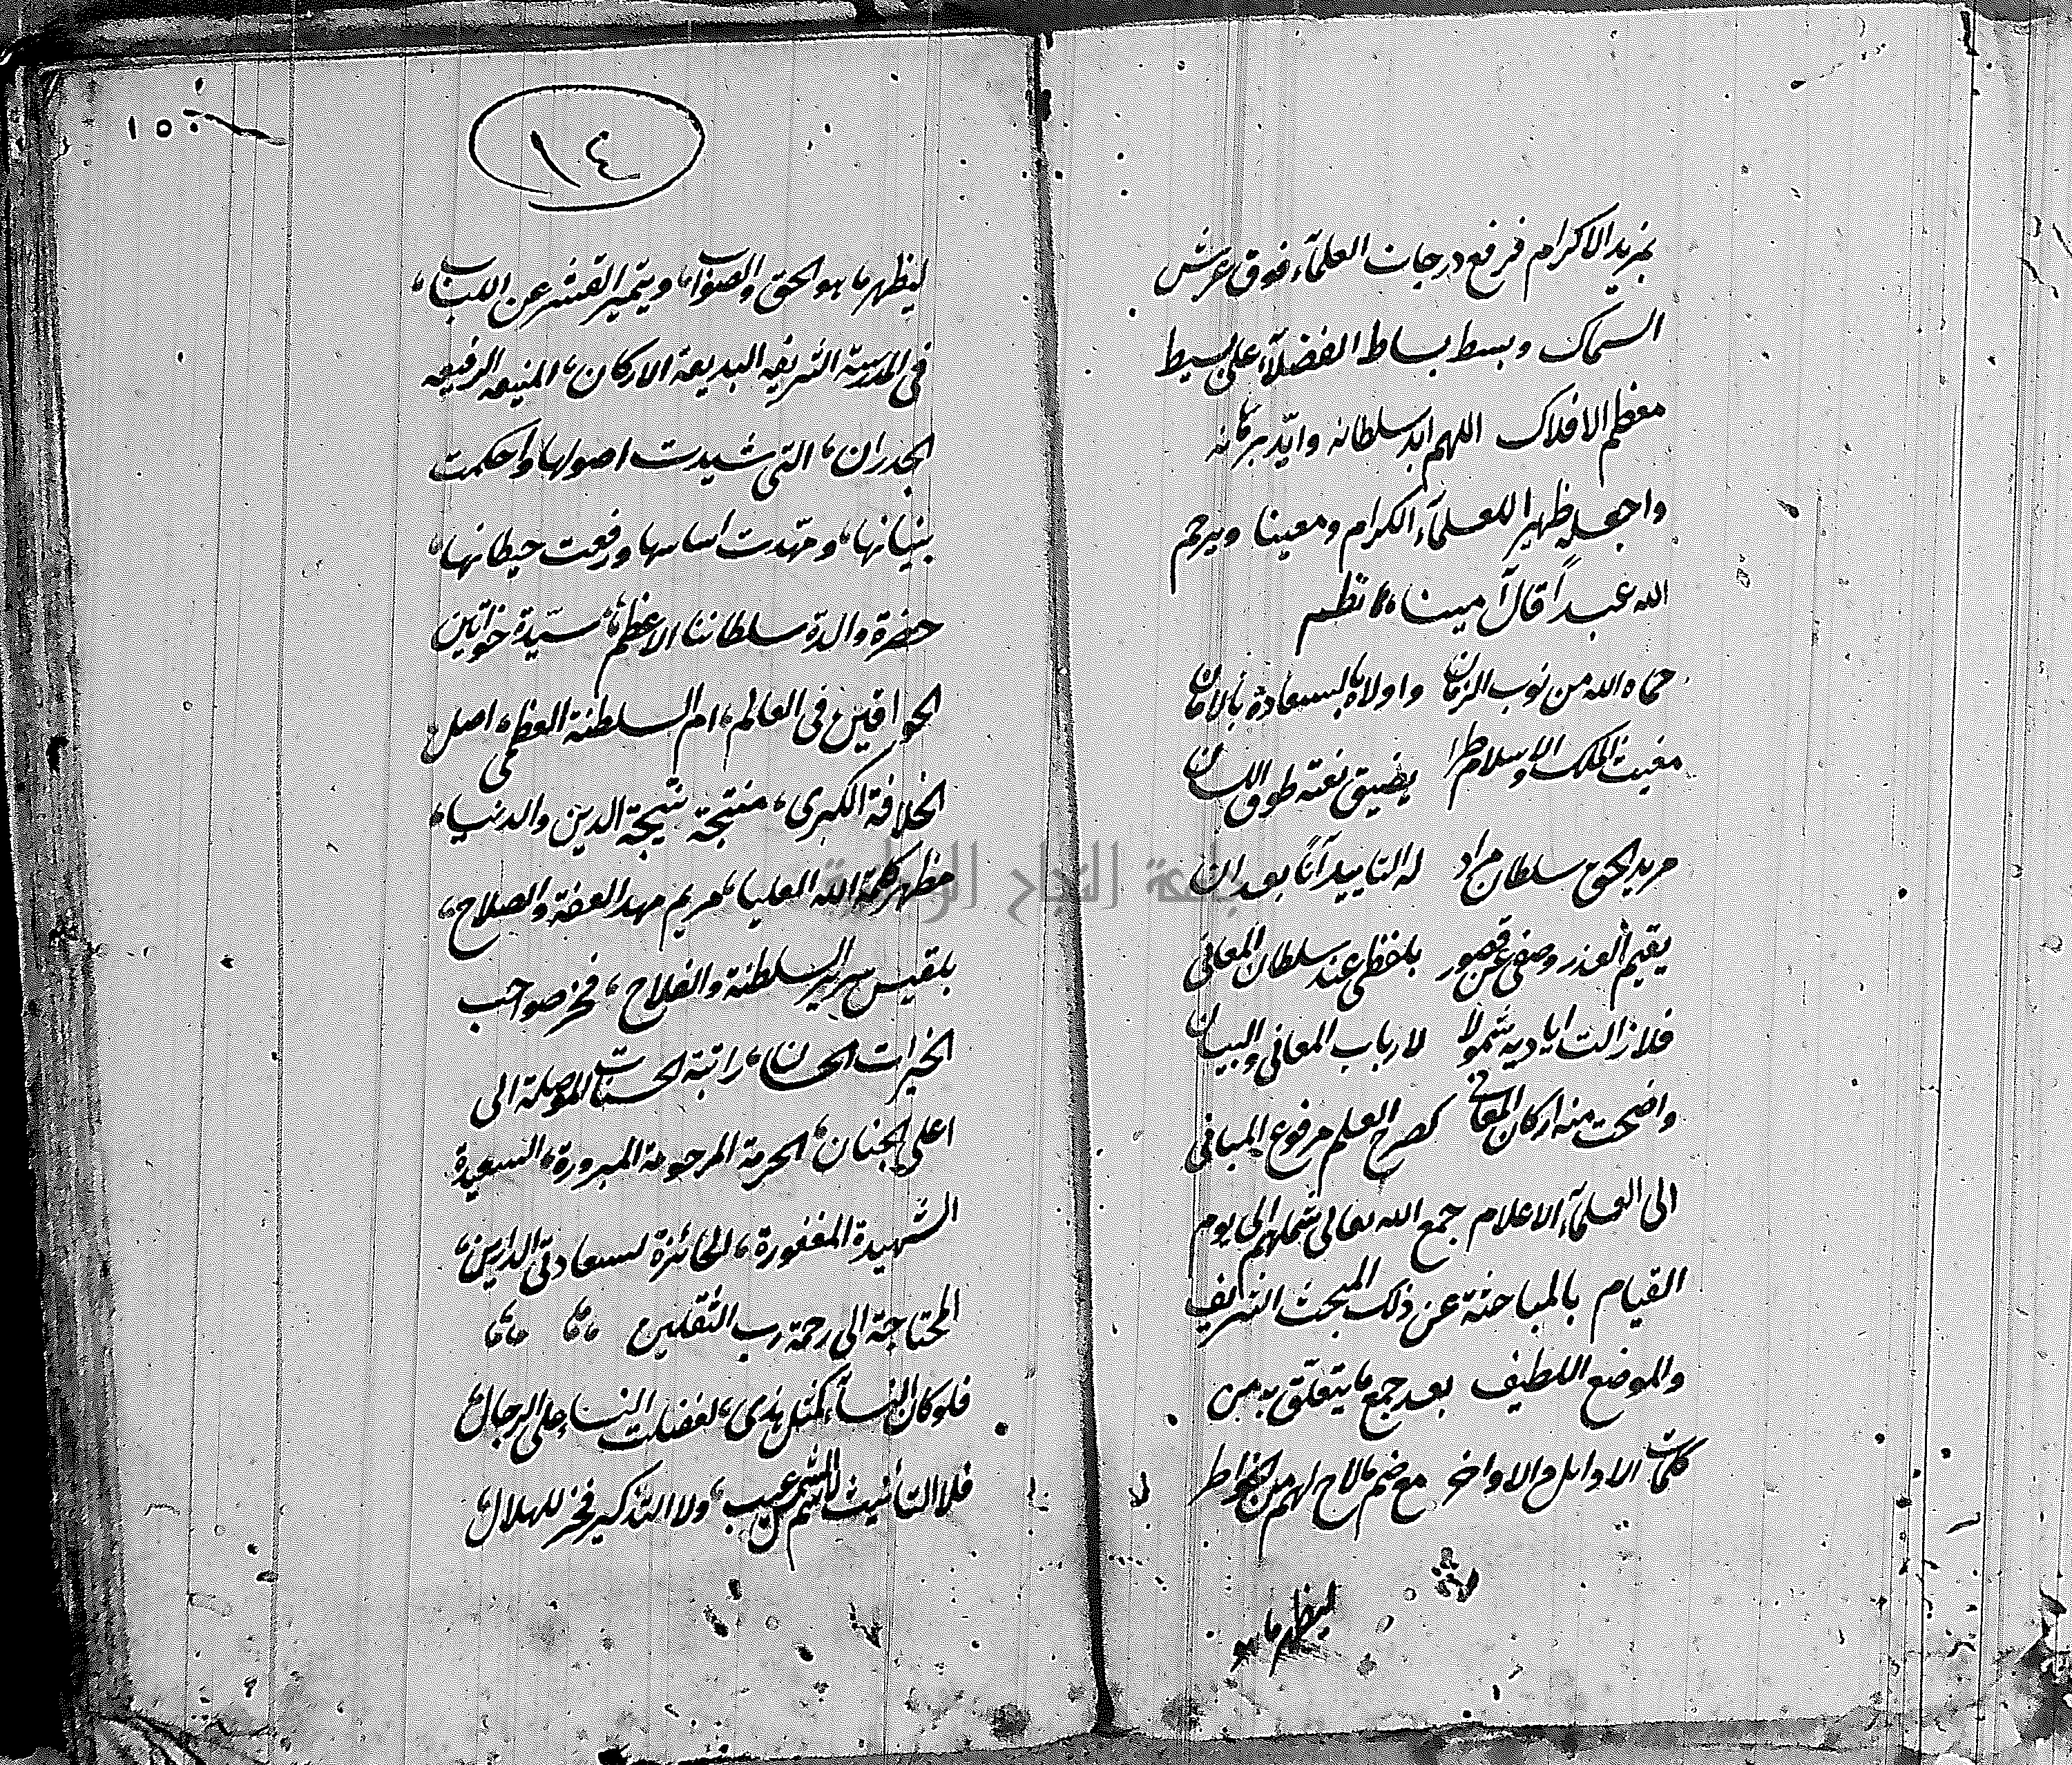 بمزيد الاكرام فرفع درجات العلمآء فوق عرش
السماك وبسط بساط الفضلآء على بسيط
معظم الافلاك اللهم ابد سلطانه وايّد برهانه
واجعله ظهيراً للعلمآء الكرام ومعينا ويرحم
الله عبداً قال آمينا، نظم
حماه الله من نوب الزمان واولاه السعادة بالامان
مغيث الملك والاسلام طرا يضيق بنعته طوق اللسان
مريد الحق سلطان مراد له التاييد آناً بعد ان
يقيم العذر وصفى عن قصور بلفظى عند سلطان المعانى
فلا زالت اياديه شمولا لارباب المعانى والبيان
واضحت منه اركان المعانى كصرح العلم مرفوع المبانى
الى العلمآء الاعلام جمع الله تعالى شملهم الى يوم
القيام بالمباحثة عن ذلك المبحث الشريف
والموضع اللطيف بعد جمع ما يتعلّق به من
كلمات الاوايل والاواخر مع ضم ما لاح لهم من الخواطر
ليظهر ما هو
١٥
١٤
ليظهر ما هو الحق والصواب، ويتميز القشر عن اللباب،
فى المدرسة الشريفه البديعة الاركان، المنيعه الرفيعه
الجدران، التى شيدت اصولها واحكمت
بنيانها، ومهّدت اساسها ورفعت حيطانها،
حضرة والدة سلطاننا الاعظم، سيّدة خواتين
الخواقين فى العالم، ام السلطنة العظمى، اصل
الخلافة الكبرى، منتجة نتيجة الدين والدنيا،
مظهر كلمة الله العليا، مريم مهد العفة والصلاح،
بلقيس سرير السلطنة والفلاح، فخر صواحب
الخيرات الحسان، راتبة الحسنات الموصلة الى
اعلى الجنان، الحرمة المرحومة المبرورة، السعيدة
الشهيدة المغفورة، الحائزة لسعادتى الدارين،
المحتاجة الى رحمة رب الثقلين
فلو كان النسآء كمثل هذى، لفضلت النساء على الرجال،
فلا التأنيث لاسم الشمس عيب، ولا التذكير فخر للهلال،
جامعة النجاح الوطنية